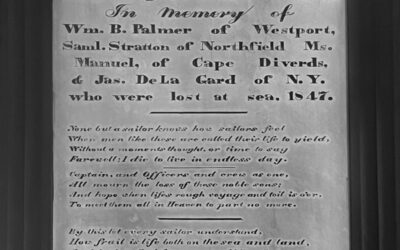 In Memory of
Wm. B. Palmer of Westport,
Saml. Stratton of Northfield Ms.
Manuel, of Cape Diverds,
& Jas. De La Gard of N.Y.
who were lost at sea, 1847.
None but a sailor knows how sailors feel
When men like these are called their life to yield,
Without a moments thought, or time to say
Farewell: I die to live in endless day.
Captain and Officers and crew as one,
All mourn the loss of these noble sons;
And hope when lifes rough voyage and toil is o'er,
To meet them all in Heaven to part no more.
By this let every sailor understand,
How frail is life both on the sea and land,